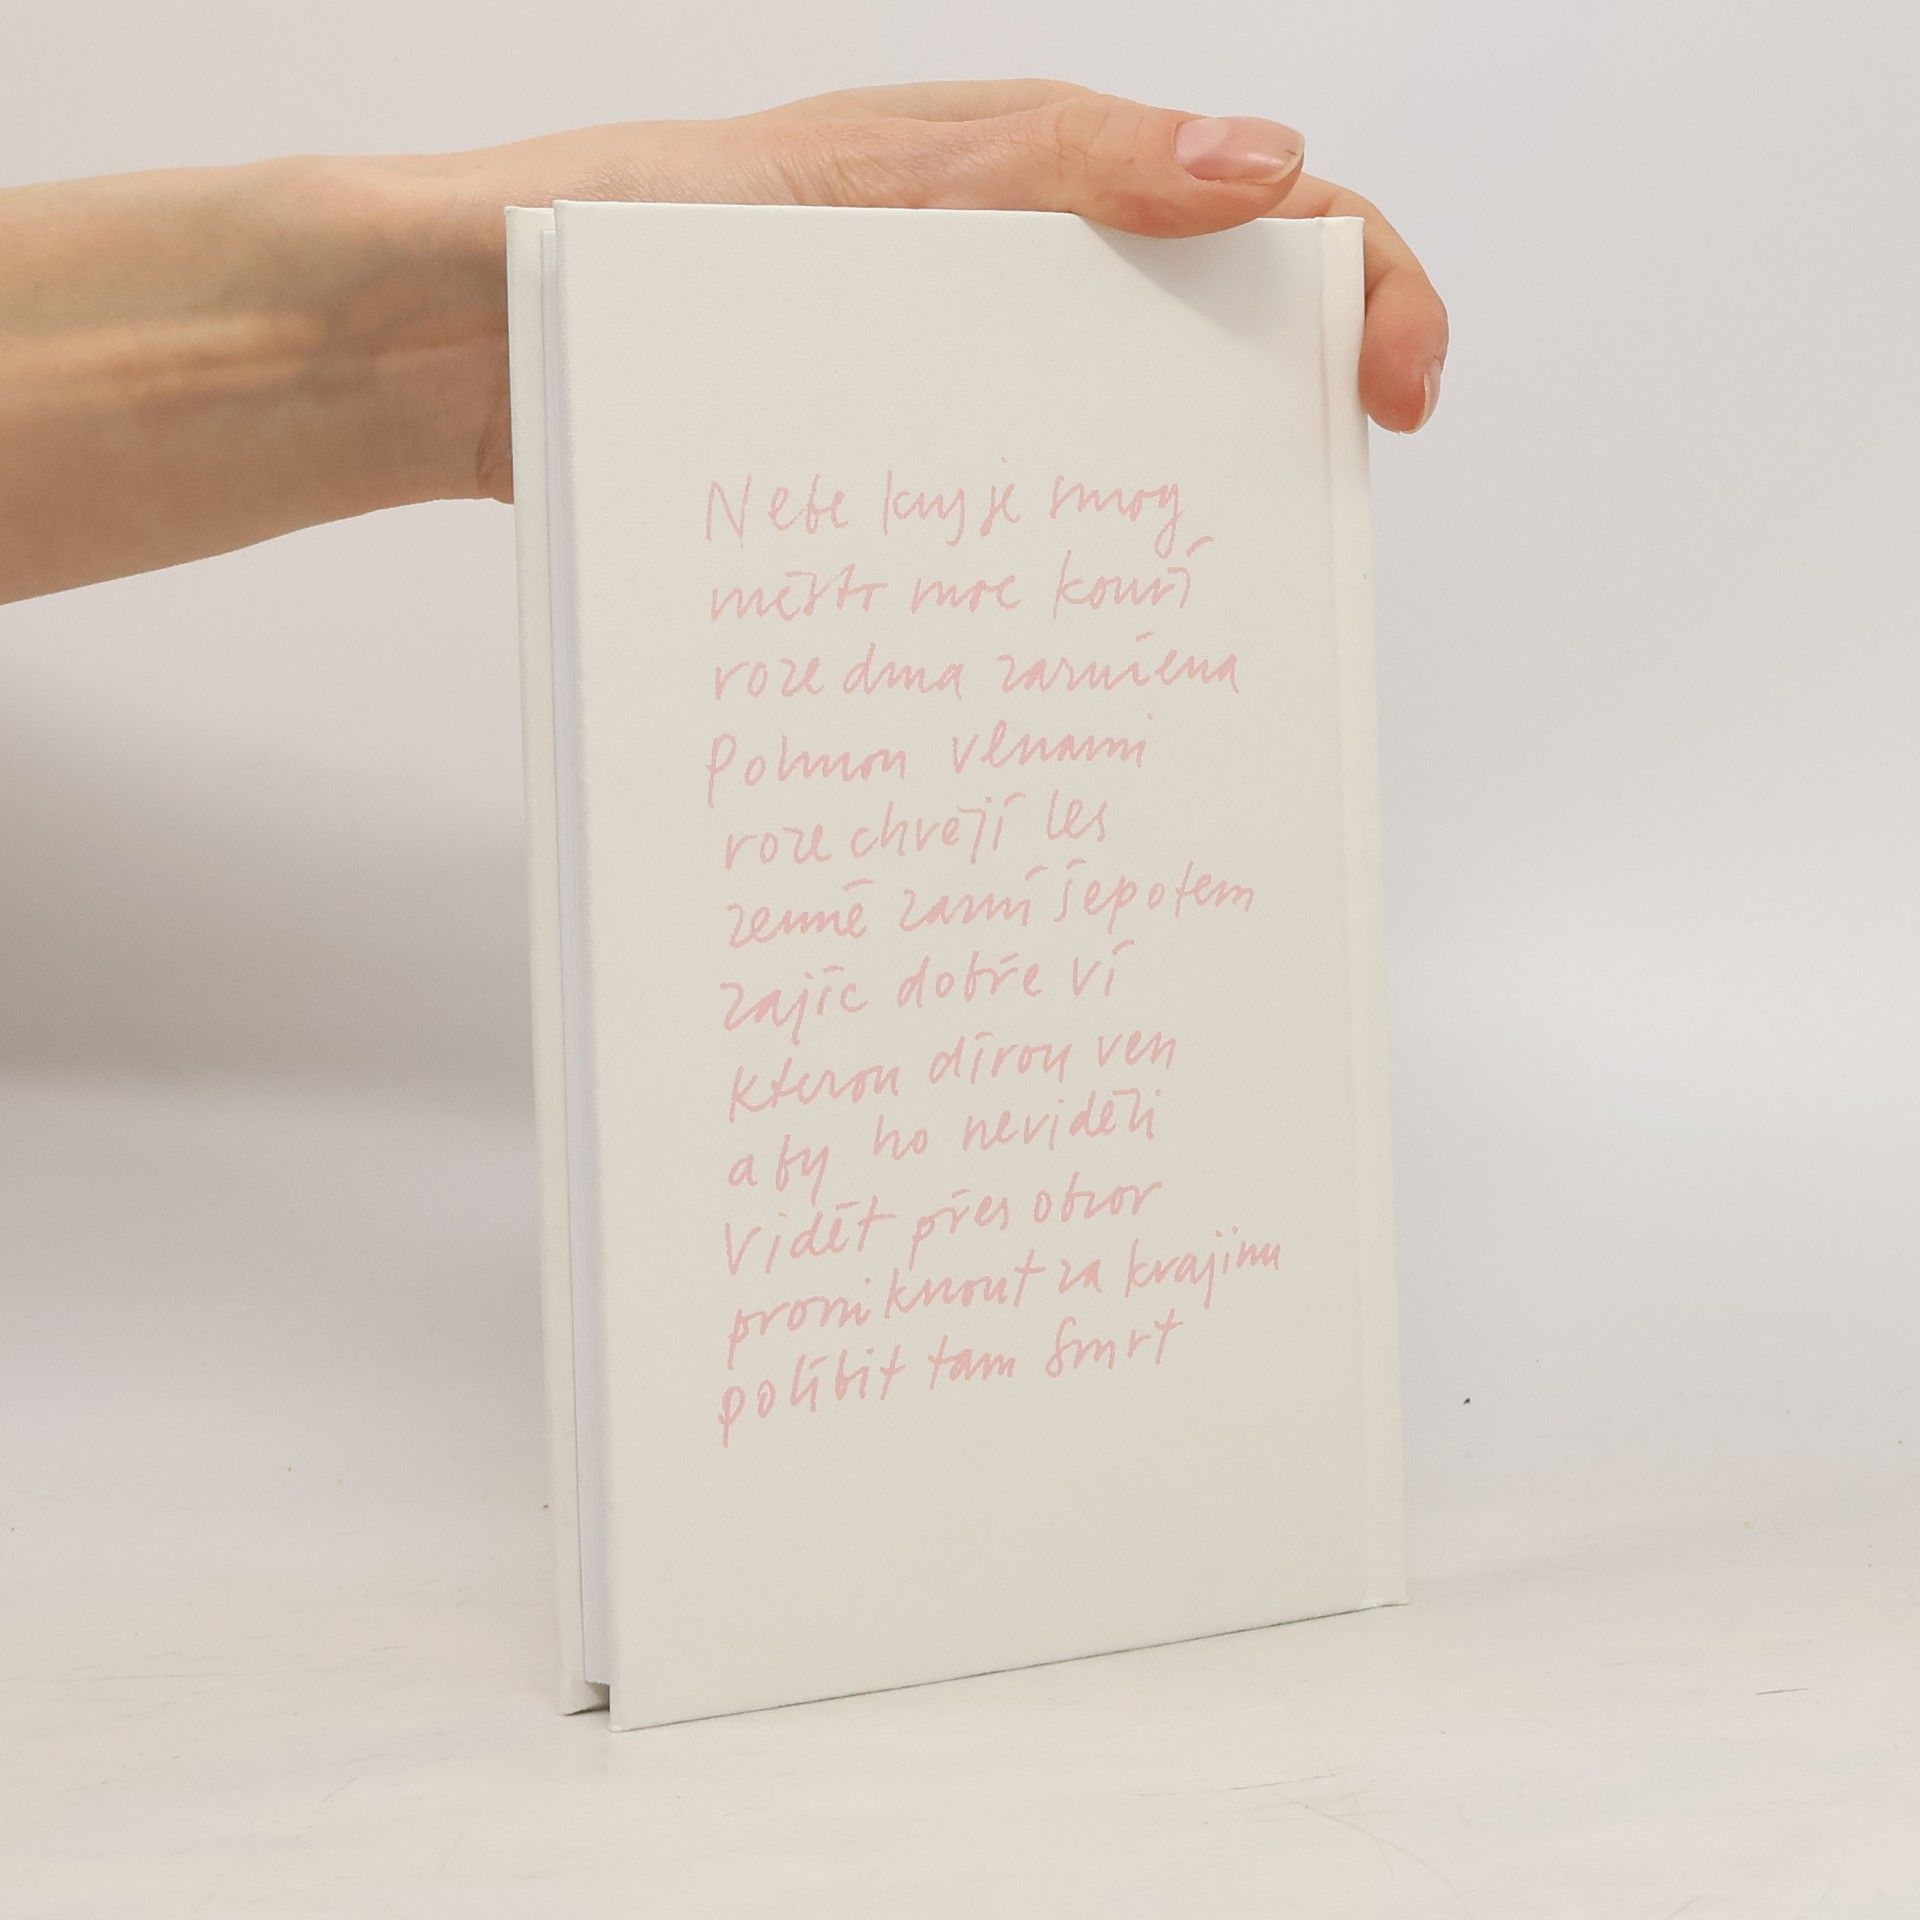 Nebe kryje smog
město moc kouří
rozedma zaručena
Pohnou vlnami
rozechvějí les
země zazní šepotem
zajíc dobře ví
kterou dírou ven
aby ho neviděli
Vidět přes obzor
proniknout za krajinu
políbit tam Smrt